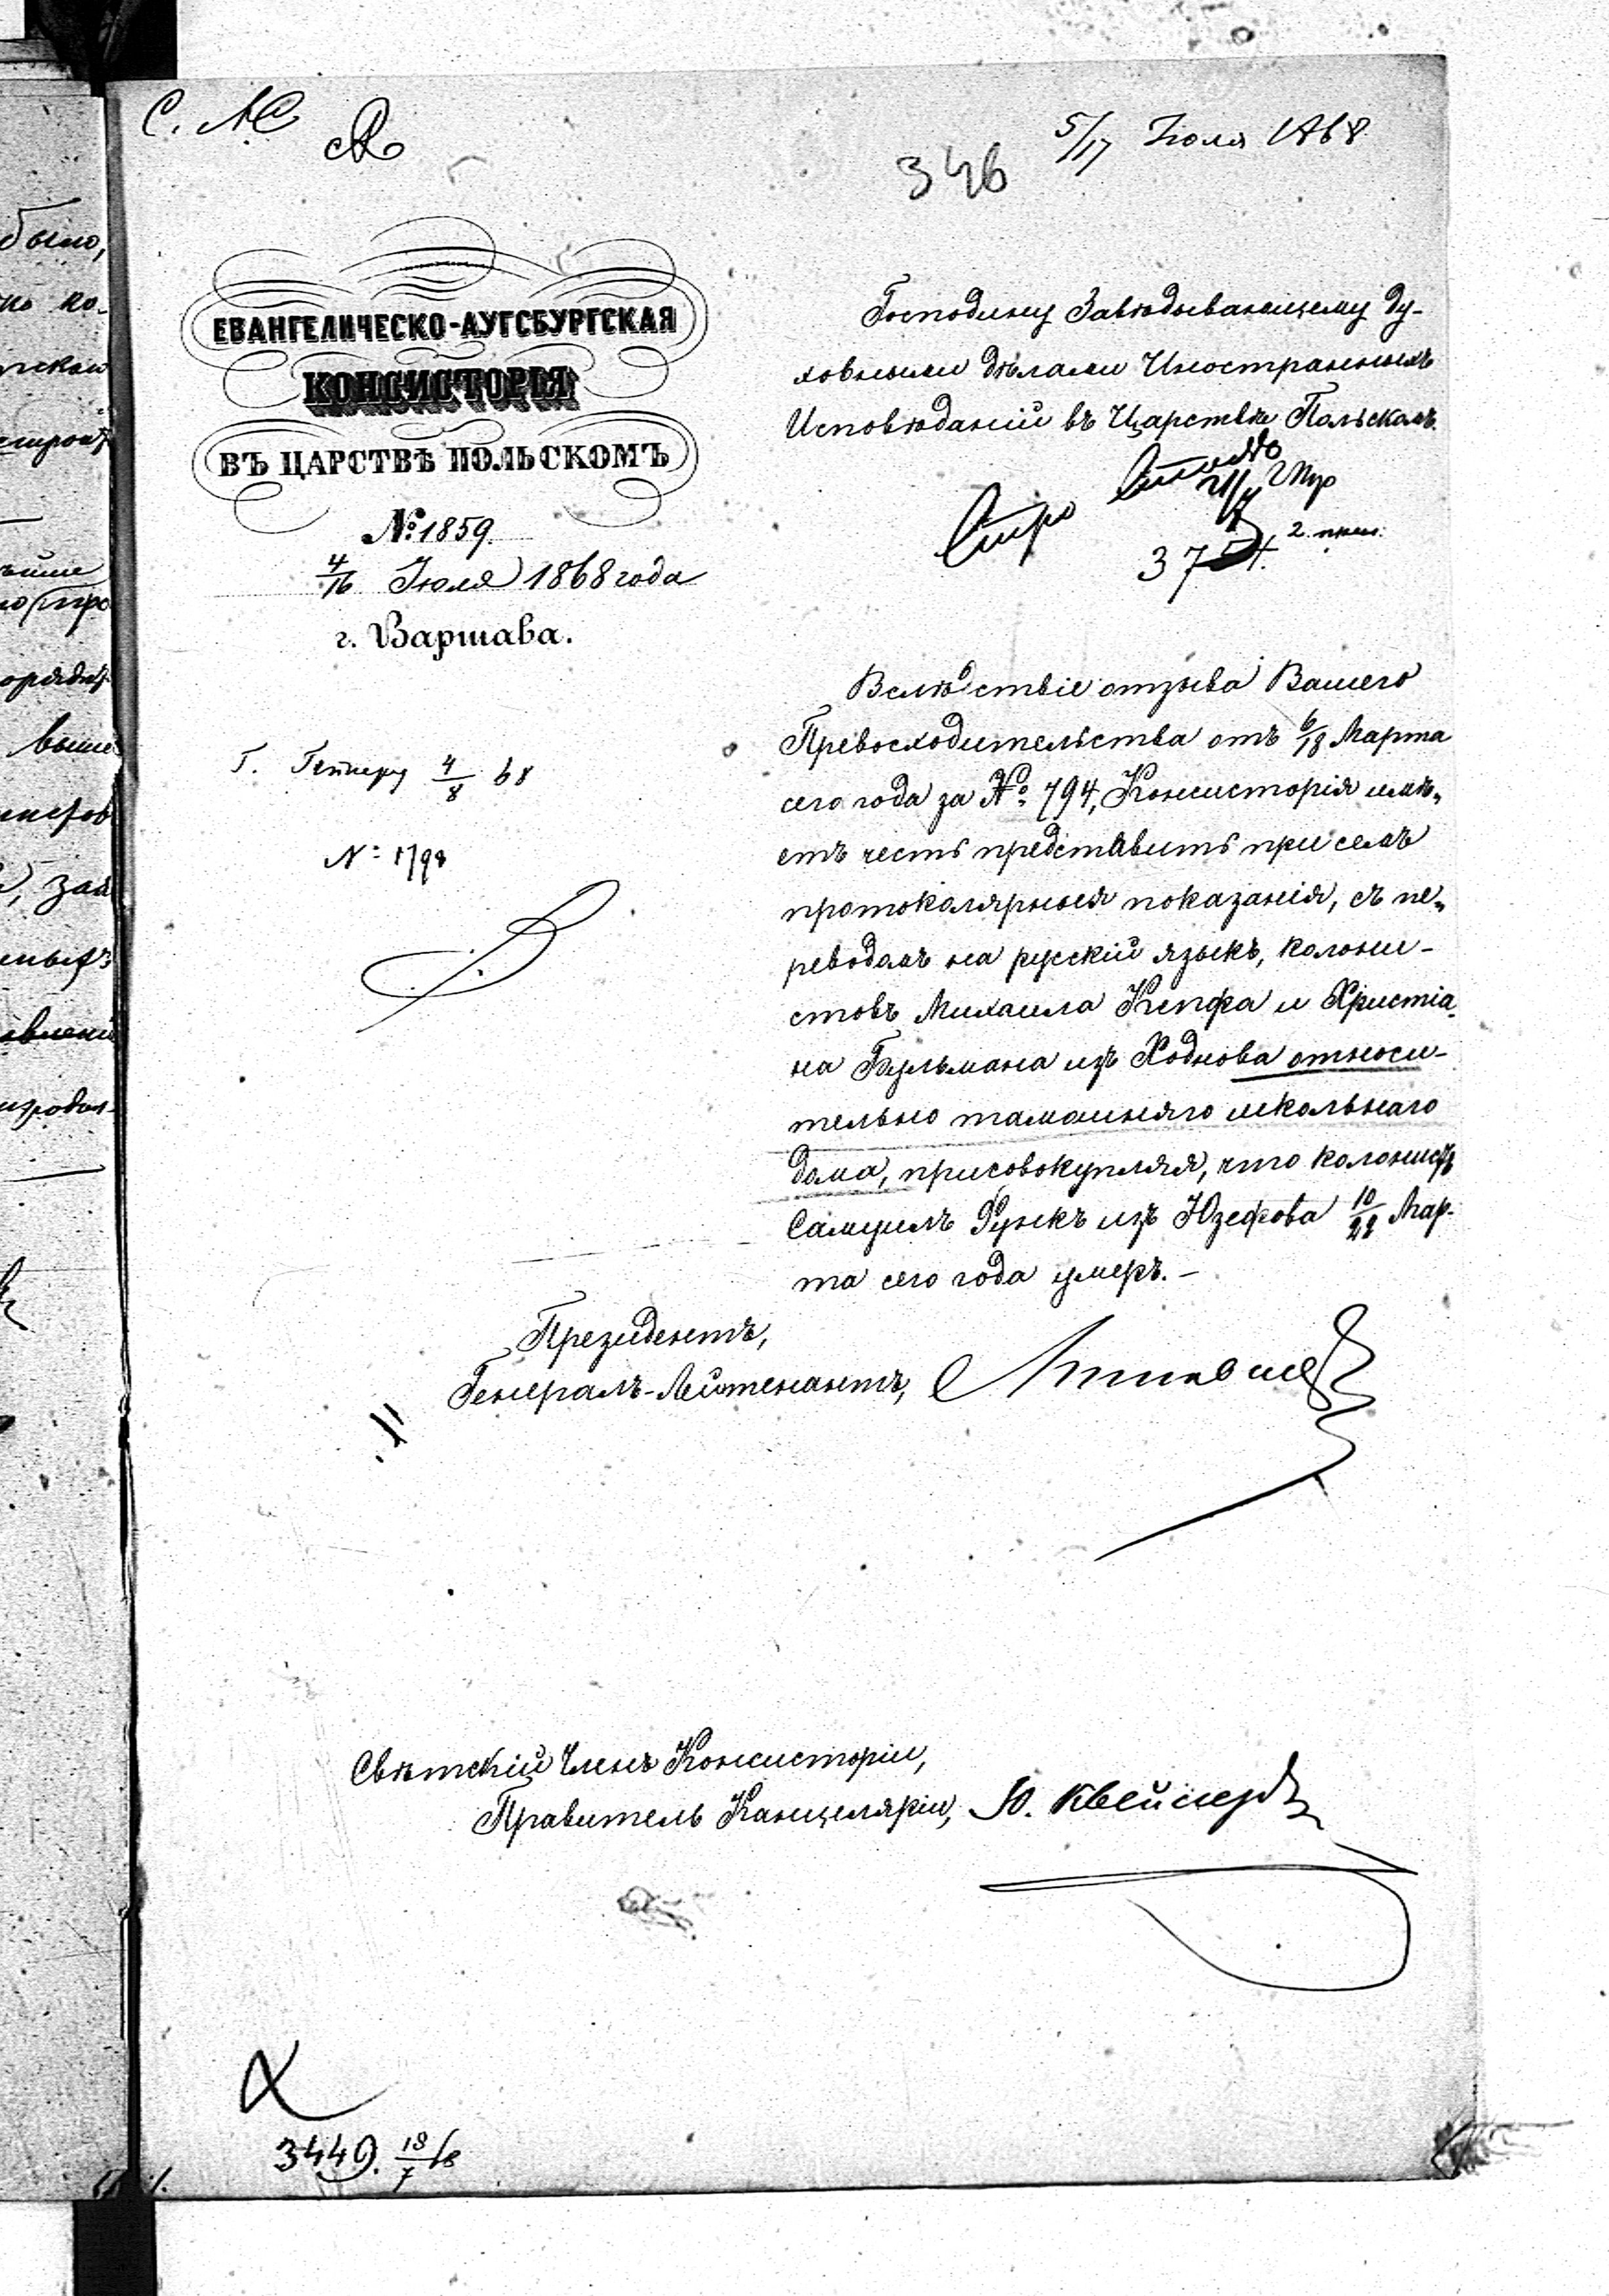 С.
5/17 Июля 1868
346
ЕВАНГЕЛИЧЕСКО-АУГСБУРГСКАЯ
КОНСИСТОРІЯ
ВЪ ЦАРСТВѢ ПОЛЬСКОМЪ
№ 1859.
4/16 Іюля 1868 года
г. Варшава.
Г. 4/8 68
№ 1798
Господину Завѣдывающему Ду-
ховными дѣлами Иностранныхъ
Исповѣданій въ Царствѣ Польскомъ.
2 прил.
Вслѣдствіе отзыва Вашего
Превосходительства отъ 6/18 Марта
сего года за № 794, Консисторія имѣ-
етъ честь представить при семъ
протоколярныя показанія, съ пе-
реводомъ на русскій языкъ, колони-
стовъ Михаила Кепфа и Христіа-
на Бульмана изъ Ходнова относи-
тельно тамошняго школьнаго
дома, присовокупляя, что колонистъ
Самуилъ Функъ изъ Юзефова 10/22 Мар-
та сего года умеръ. —
Президентъ,
Генералъ-Лейтенантъ,
Свѣтскій Членъ Консисторіи,
Правитель Канцеляріи, Ю.
3449. 18/7 68